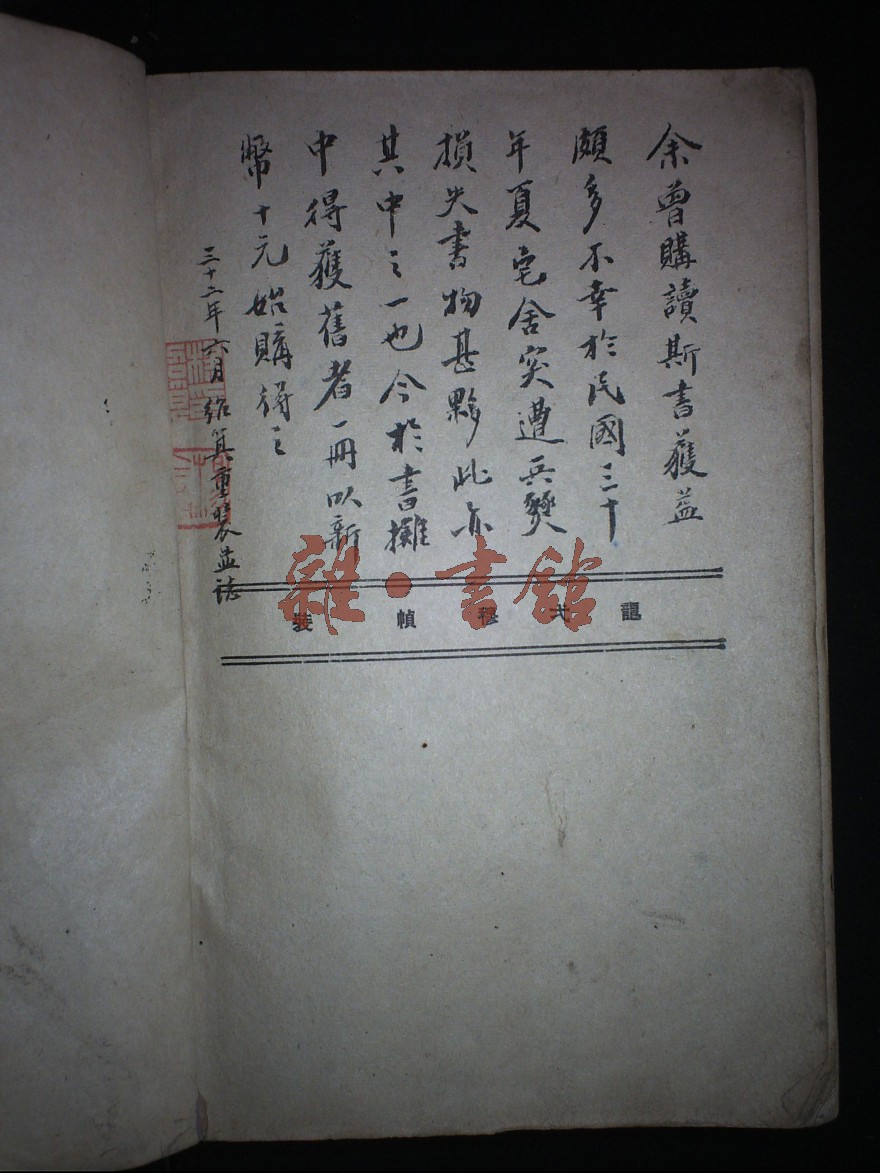 余曾購讀斯書獲益
頗多不幸於民國三十
年夏宅舍突遭兵燹
損失書物甚夥此亦
其中之一也今於書攤
中得獲舊者一冊以新
幣十元始購得之
三十二年六月紹箕重裝並誌
裝幀
雜·書館